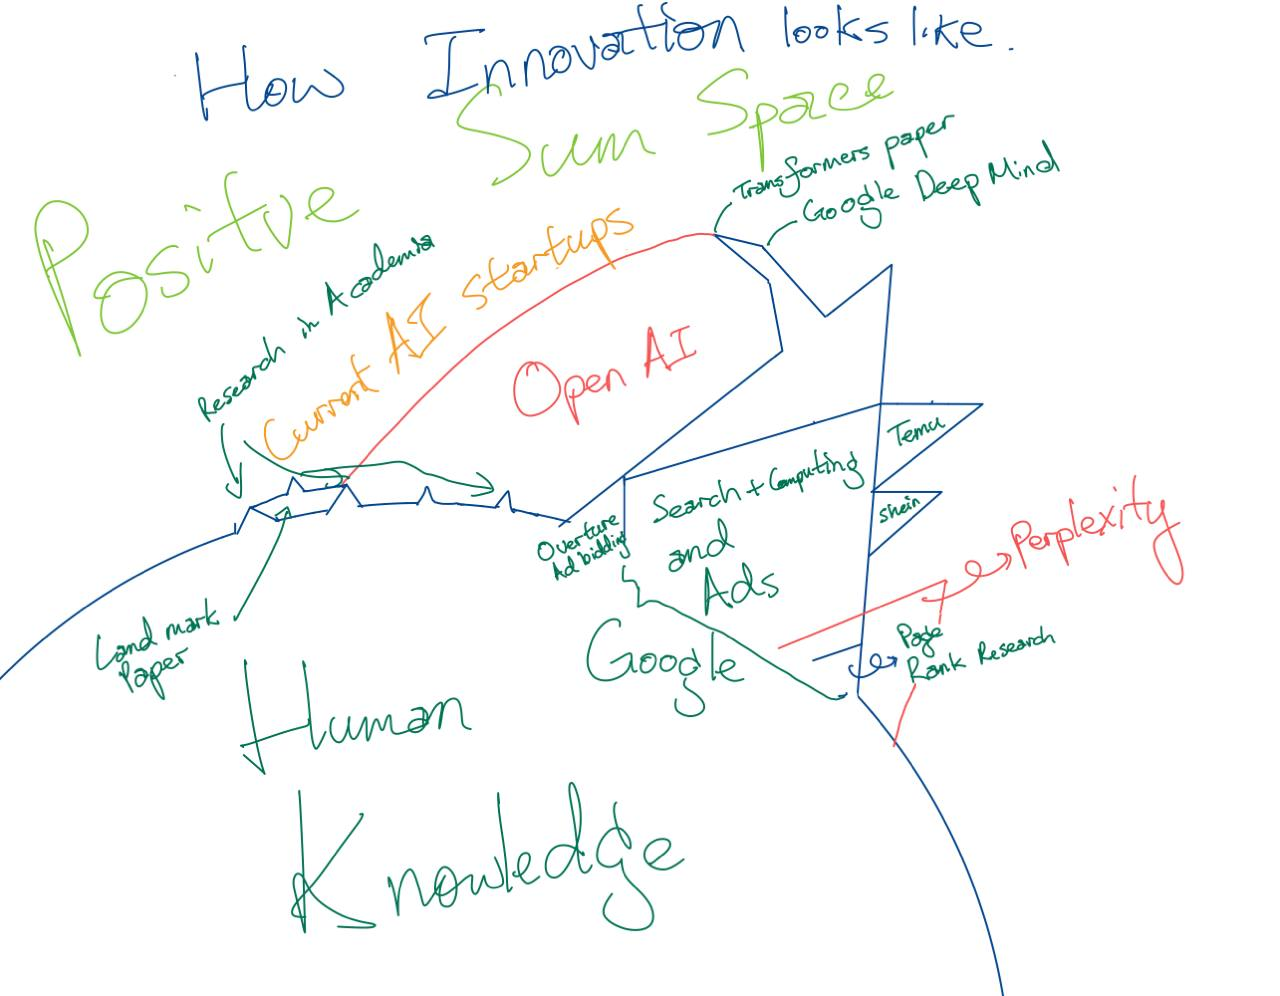 How Innovation looks like.
Positve Sum Space
Transformers paper
Google Deep Mind
Research in Academia
Current AI startups
Open AI
Temu
Shein
Search + Computing
and
Ads
Overture
Ad bidding
Perplexity
Google
Page
Rank Research
Land mark
Paper
Human
Knowledge